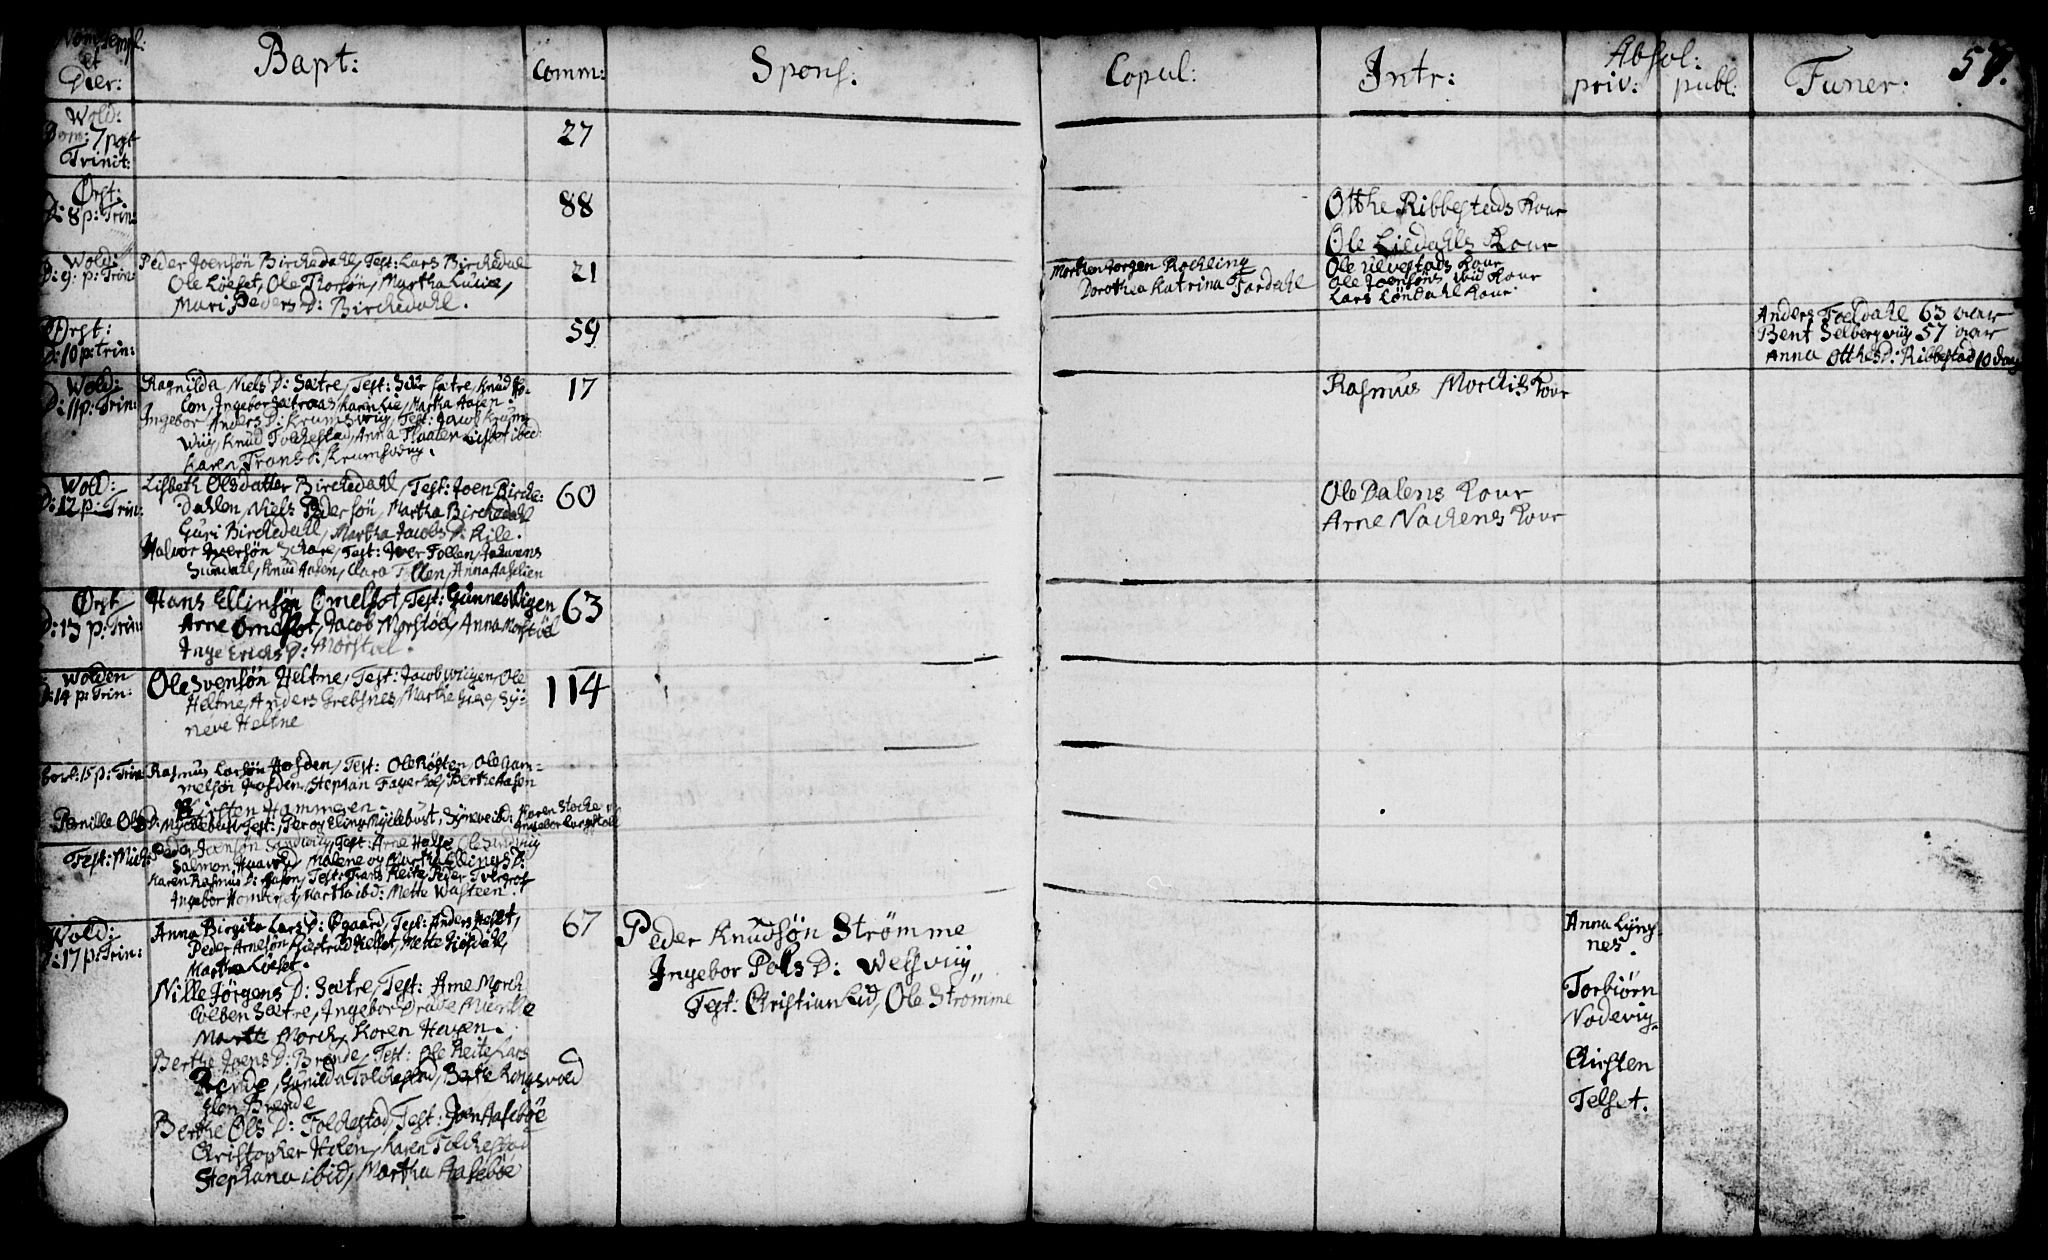 Nom: Templ:
et
Dier:
Bapt:
Comm:
Spons:
Copul:
Intr:
Absol:
priv: publ:
Funer:
57.
Wold:
Dom: 7 pst
Trinit:
27
Ørst:
D: 8 p: Trin:
88
Otthe Ribbestads Kone
Ole Liedahls Kone
Wold:
D: 9. p: Trin:
Peder Joensøn Birchedahl, Test: Lars Birchedal
Ole Løeset, Ole Thorsøn, Martha Lucie,
Mari Peders D: Birchedahl.
21
Morthen Jørgen Rochling
Dorothea Katrina Fardahl
Ole Ulvestads Kone
Ole Joensøns ibid Kone
Lars Løndahl Kone
Ørst:
D: 10 p: Trin:
59
Anders Foeldahl 63 aar
Bent Selbergviig 57 aar
Anna Otthes D: Ribbestad 10 dag
Wold:
D: 11 p: Trin:
Ragnilda Niels D: Sætre, Test: Siur Sætre, Knud
Ingebor Sætraas, Karen Lie, Martha Aasen.
Ingebor Anders D: Krumsviig, Test: Jacob Krums
Wiig, Knud Folchestad, Anna Flaaten, Lisbet ibid:
Karen Frans D: Krumsviig.
17
Rasmus Morchis Kone
Wold:
D: 12 p: Trin:
Lisbeth Olsdatter Birchedahl, Test: Joen Birche:
Dahlen, Niels Pedersøn, Martha Birchedahl
Guri Birchedahl, Martha Jacobs D: Rile.
Halvor Iversøn Schare, Test: Iver Follen, Johannes
Sundahl, Knud Aasen, Clara Follen, Anna Aaselien
60
Ole Dalens Kone
Arne Nachens Kone
Ørst
D: 13 p: Trin:
Hans Ellinsøn Omelfot, Test: Gunnes Wigen
Arne Omelfot, Jacob Morstøl, Anna Morstøel
Inge Erichs D: Morstøel.
63
Wolden
D: 14 p: Trin:
Ole Svensøn Heltne, Test: Jacob Wiigen, Ole
Heltne, Anders Grebsnes, Marthe Giere, Sÿ:
neve Heltne
114
15 p: Trin:
Rasmus Larsøn Hofden, Test: Ole Røsten, Ole Gam-
melsøn Hofden, Stephan Fagerhol, Berthe Aasen
Kirsten Hammeren.
Pernille Ols D: Mÿclebust, Test: Per og Eling Myclebust, Sÿnneve ibid: Karen Stoche
Ingebor
Fest: Mich:
Peder Joensøn Sandwiig, Test: Arne Helse, Ole Sandwiig
Salmon Haavold, Malene og Martha Ellings D:
Karen Rasmus D: Aasen, Test: Frans Reite, Peder
Ingebor Homberset, Martha ibd: Mette Wasteen.
Wold:
D: 17 p: Trin:
Anna Birgita Lars D: Øgaard, Test: Anders Hellet,
Peder Arnesøn, Giertrud Hellet, Mette Liesdahl,
Martha Løeset.
67
Nille Jørgens D: Sætre, Test: Arne Morch
Colben Sætre, Ingebor
Marthe Morch, Karen Haven.
Berthe Joens D: Brende, Test: Ole Reite, Lars
Brende, Gunilda Folchestad, Berte Longsvold
Elen Brende
Berthe Ols D: Folchestad, Test: Joen Aasebøe
Christopher Holen, Karen Folchestad
Stephana ibid, Martha Aasebøe
Peder Knudsøn Strømme
Ingebor Pols D: Welsviig
Test: Christian Lid, Ole Strømme
Anna Lÿng-
nes.
Torbiørn
Nodevig.
Chirsten
Telset.